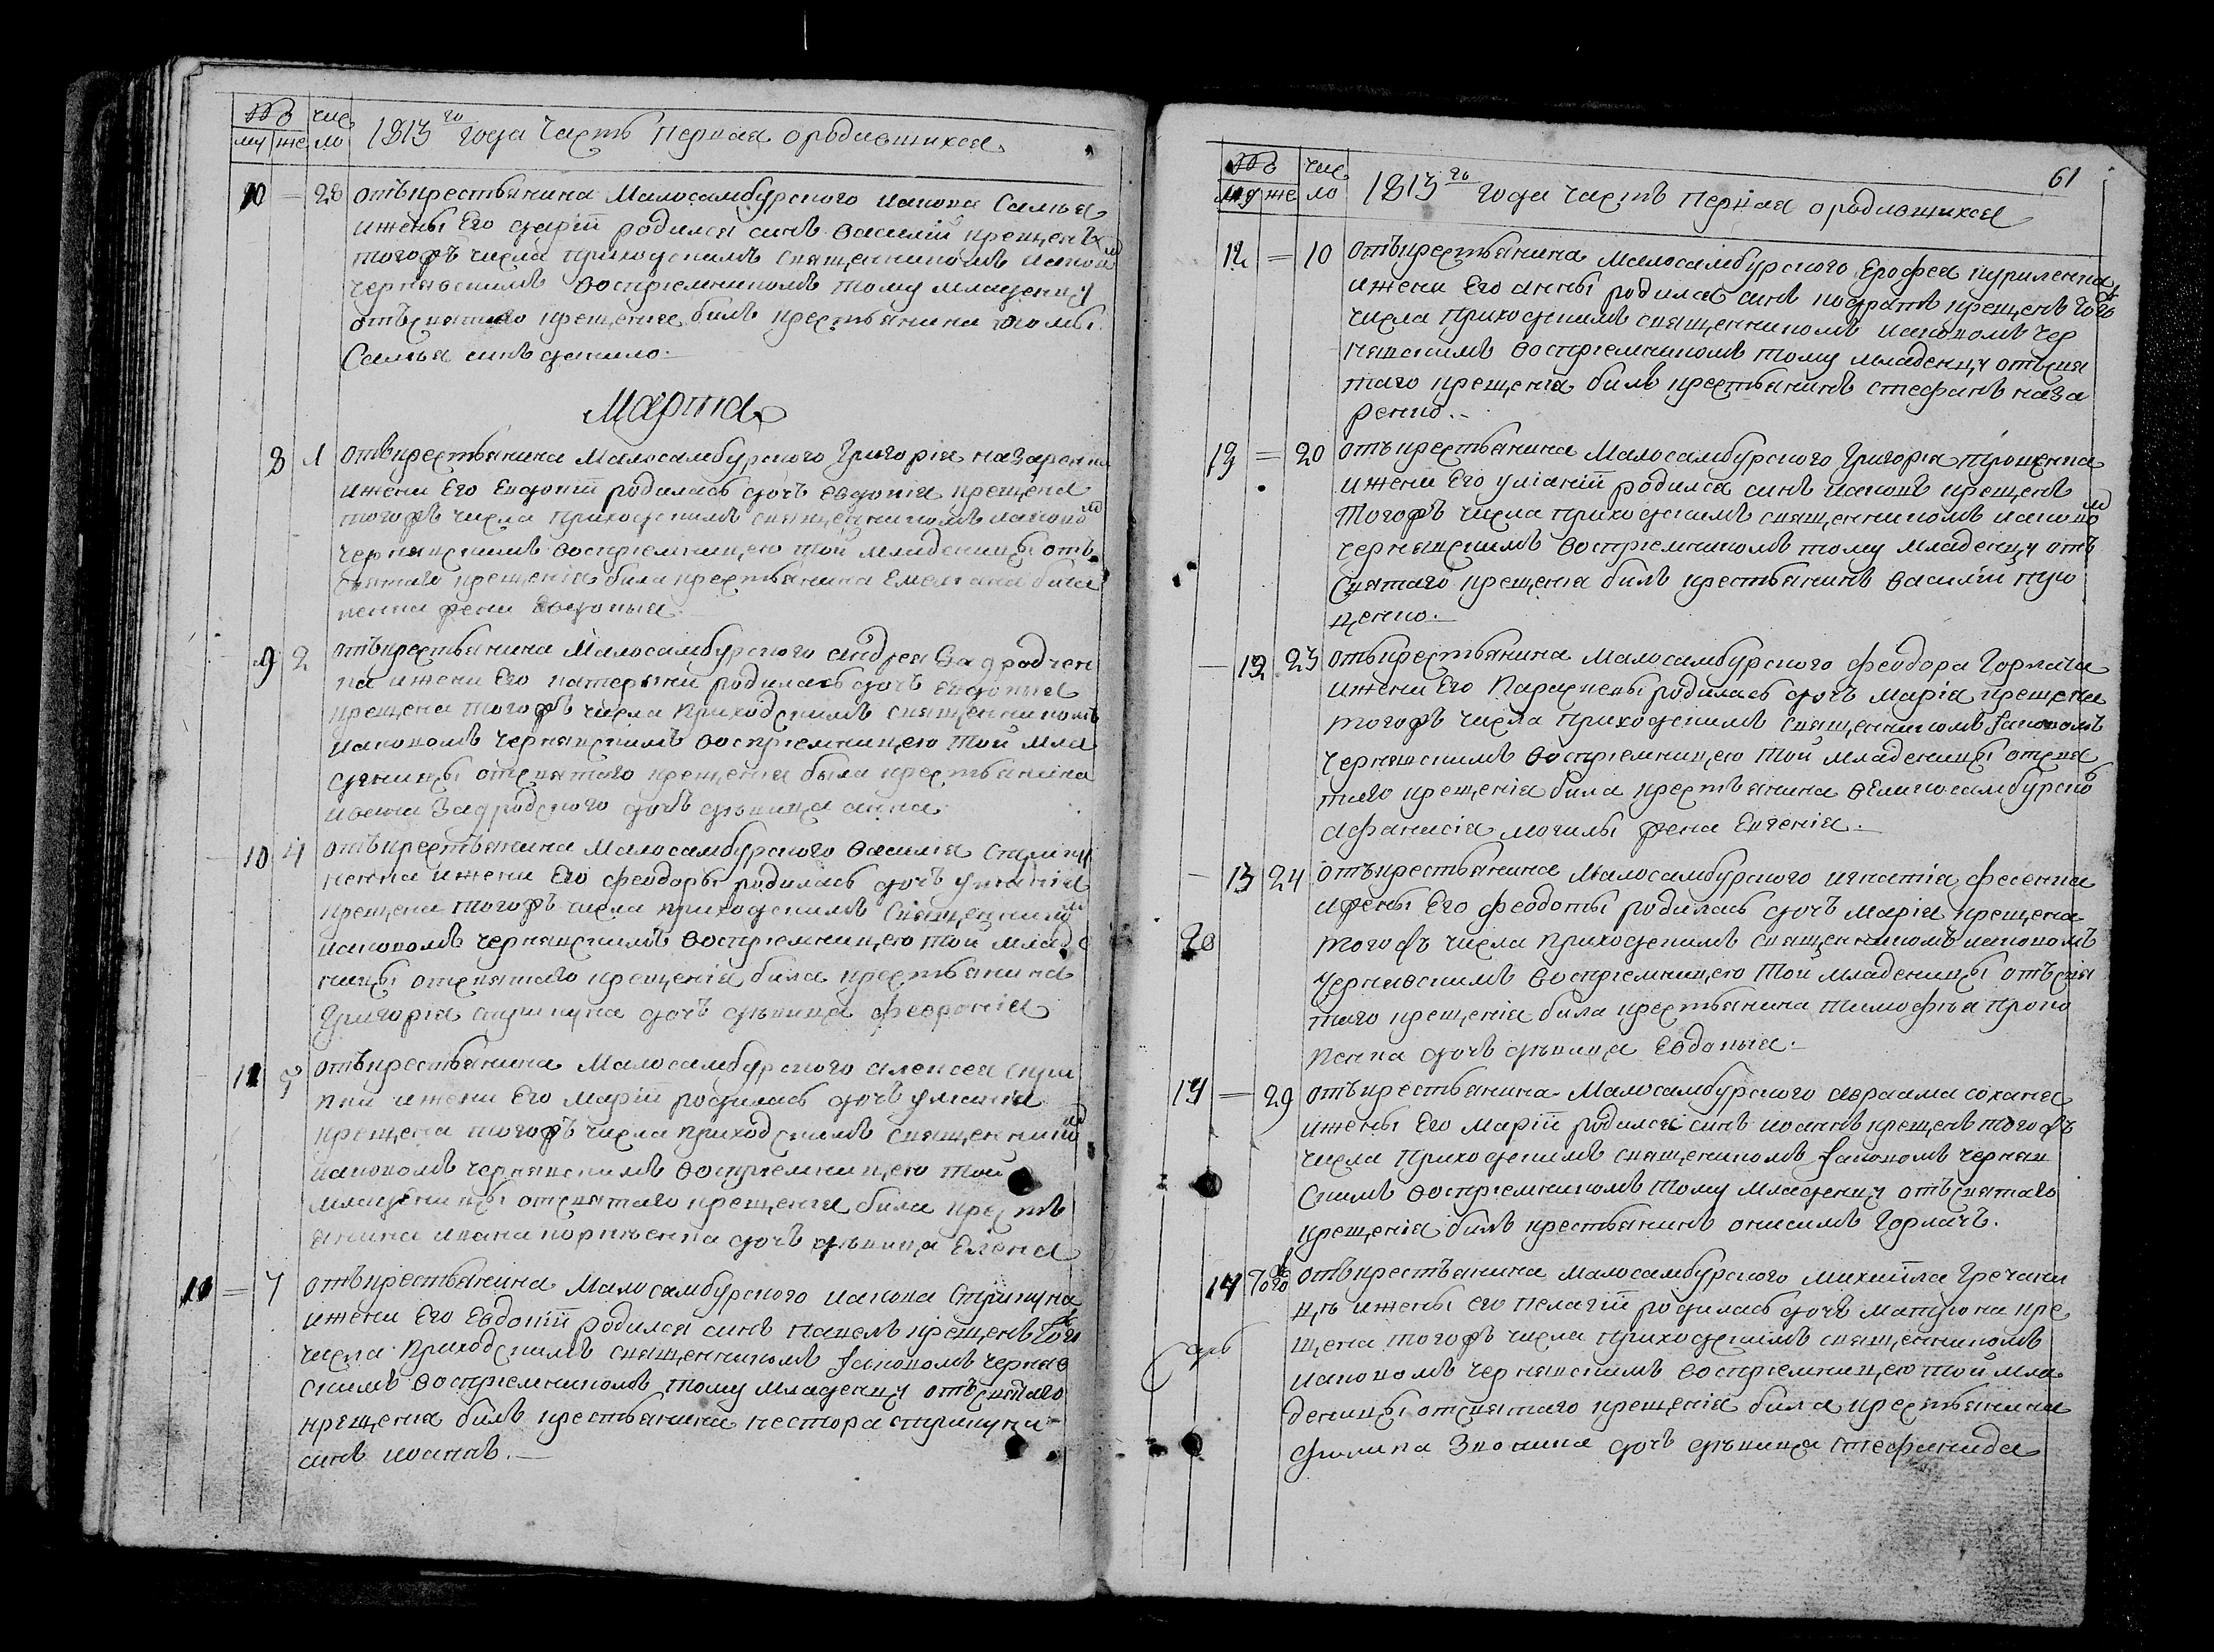 чис
му же ло
1813го года Часть Первая о родившихся
10 — 28 отъ крестьянина Малосамбурского Иакова Самъя
и жены Его Дарїи родился синъ Василїй крещенъ
тогожъ числа приходскимъ священникомъ Иаковом
Чернявскимъ восприемникомъ тому младенцу
отъ святаго крещенія билъ крестьянина Фомы
Самъя синъ Данило.
Марта
8 1 отъ крестьянина Малосамбурского Григорїя Назаренка
и жени Его Евдокїи родилась дочъ Евдокїя крещена
тогожъ числа приходскимъ священникомъ Иаковом
Чернявскимъ восприемницею той младеницы отъ
святаго крещенїя била крестьянина Емелїана
женa Евдокия
9 2 отъ крестьянина Малосамбурского Андрея Задродчен
ка и жени Его Катерини родилась дочъ Евдокия
крещена тогожъ числа Приходскимъ священникомъ
Иаковомъ Чернявскимъ восприемницею той мла
деницы от святаго крещенїя была крестьянина
Задродского дочъ дѣвица Анна
10 4 отъ крестьянина Малосамбурского Василїя
и жени Его Феодоры родилась дочъ Улїанїя
крещена тогожъ числа приходскимъ священником
Иаковомъ Чернявскимъ восприемницею той младе
ницы от святаго крещенїя била крестьянина
Григорїя дочъ дѣвица Феврониїя
11 5 отъ крестьянина Малосамбурского Алексея
и жени Его Марїи родилась дочъ Улїанїя
крещена тогожъ числа Приходскимъ священником
Иаковомъ Чернявскимъ восприемницею той
младеницы от святаго крещенїя била кресть
янина Ивана Корнѣенка дочъ дѣвица Елена
11 — 7 отъ крестьянина Малосамбурского Иакова Стрикуна
и жени Его Евдокїи родился синъ Павелъ крещенъ тогож
числа Приходскимъ священникомъ Iаковомъ Черняв
скимъ восприемникомъ тому младенцу отъ святаго
крещенїя билъ крестьянина Нестора Стрикуна
синъ Иоаннъ.
61
чис
му же ло
1813го года часть Первая о родившихся
12 — 10 отъ крестьянина Малосамбурского Ерофея Куриленка
и жени Его Анны родился синъ Кодратъ крещенъ тогож
числа приходскимъ священникомъ Иаковомъ Чер
нявскимъ восприемникомъ тому младенцу отъ свя
таго крещенїя билъ крестьянинъ Стефанъ Наза
ренко.
13 — 20 отъ крестьянина Малосамбурского Григорїя Трощенка
и жени Его Улїанїи родился синъ Иаковъ крещенъ
тогожъ числа приходскимъ священникомъ Иаковом
Чернявскимъ восприемникомъ тому младенцу отъ
святаго крещенїя билъ крестьянинъ Василїй
ценко.
— 12 23 отъ крестьянина Малосамбурского Феодора Горлача
и жени Его Параскевы родилась дочъ Марїя крещена
тогожъ числа приходскимъ священникомъ Iаковомъ
Чернявскимъ восприемницею той младеницы от свя
таго крещенїя била крестьянина Великосамбурского
Афанасїя Могилы жена Евгенїя.
— 13 24 отъ крестьянина Малосамбурского Игнатїя Фесенка
и жены Его Феодоты родилась дочъ Марїя крещена
тогожъ числа приходскимъ священникомъ Иаковомъ
Чернявскимъ восприемницею той младеницы отъ свя
таго крещенїя била крестьянина Тимофѣя Проко
пенка дочъ дѣвица Евдокия.
14 — 29 отъ крестьянина Малосамбурского Авраама Сохана
и жены Его Марїи родился синъ Иоаннъ крещенъ тогожъ
числа приходскимъ священикомъ Iаковомъ Черняв
скимъ восприемникомъ тому младенцу отъ святаго
крещенїя билъ крестьянинъ Онисимъ Горлачъ.
14 тогож отъ крестьянина Малосамбурского Михаїла Гречани
и жены его Пелагїи родилась дочъ Матрона кре
щена тогожъ числа приходскимъ священникомъ
Иаковомъ Чернявскимъ восприемницею той мла
деницы от святаго крещенїя била крестьянина
Филипа дочъ дѣвица Стефанида